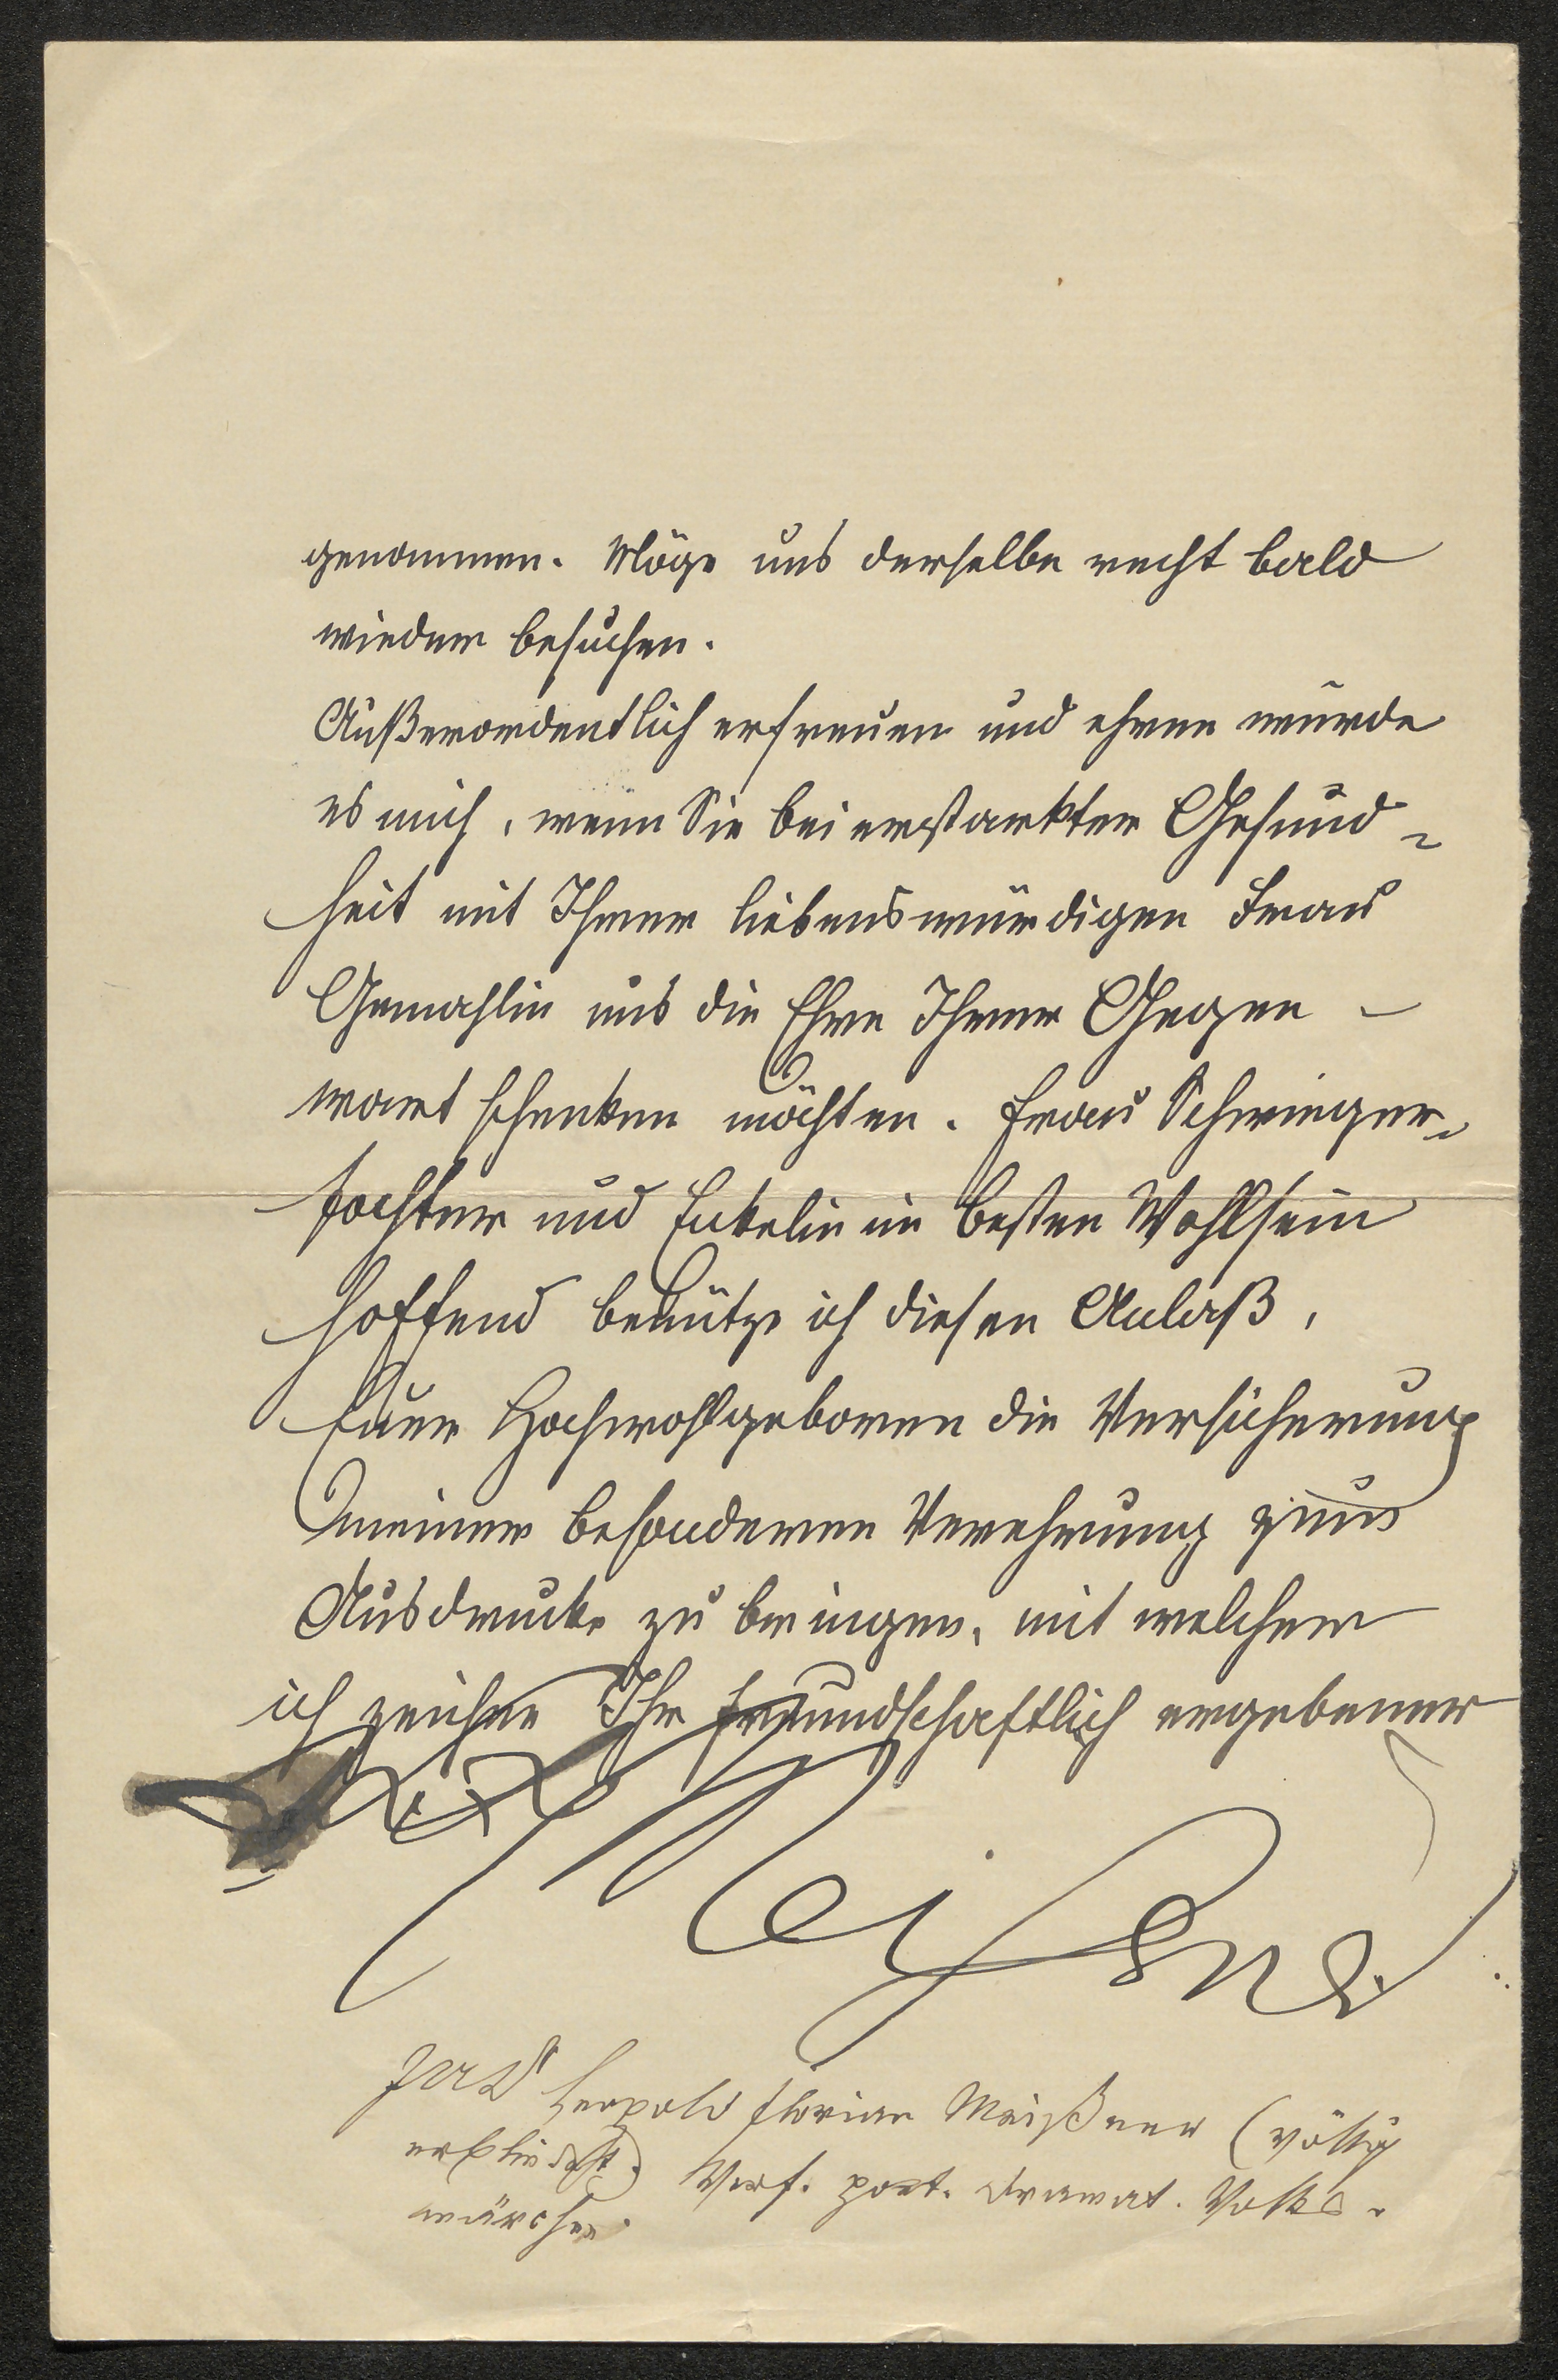 genommen. Möge uns derselbe recht bald
wieder besuchen.
Außerordentlich erfreuen und ehren würde
es mich, wenn Sie bei erstarkter Gesund-
heit mit Ihrer liebenswürdigen Frau
Gemahlin uns die Ehre Ihrer Gegen-
wart schenken möchten. Frau Schwieger-
tochter und Enkelin im besten Wohlsein
hoffend benütze ich diesen Anlaß,
Euer Hochwohlgeboren die Versicherung
meiner besonderen Verehrung zum
Ausdrucke zu bringen, mit welcher
ich zeichne Ihr freundschaftlich ergebener
Meißner
Leopold Florian Meißner (völlig
erblindet) Verf. poet. dramat. Volks-
märchen.